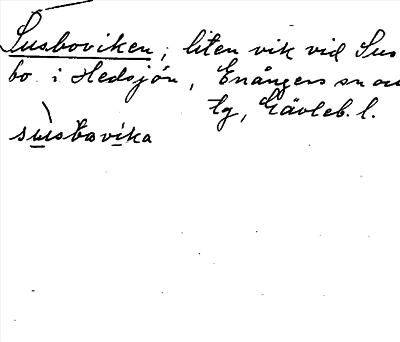 Susboviken, liten vik vid Sus
bo i Hedsjön, Enångers sn oc
tg, Gävleb. l.
susbovika